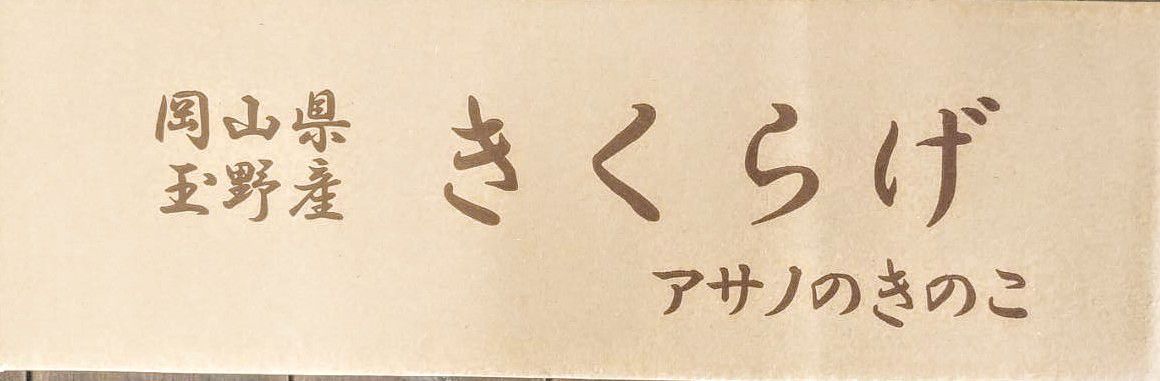 岡山県
玉野産
きくらげ
アサノのきのこ